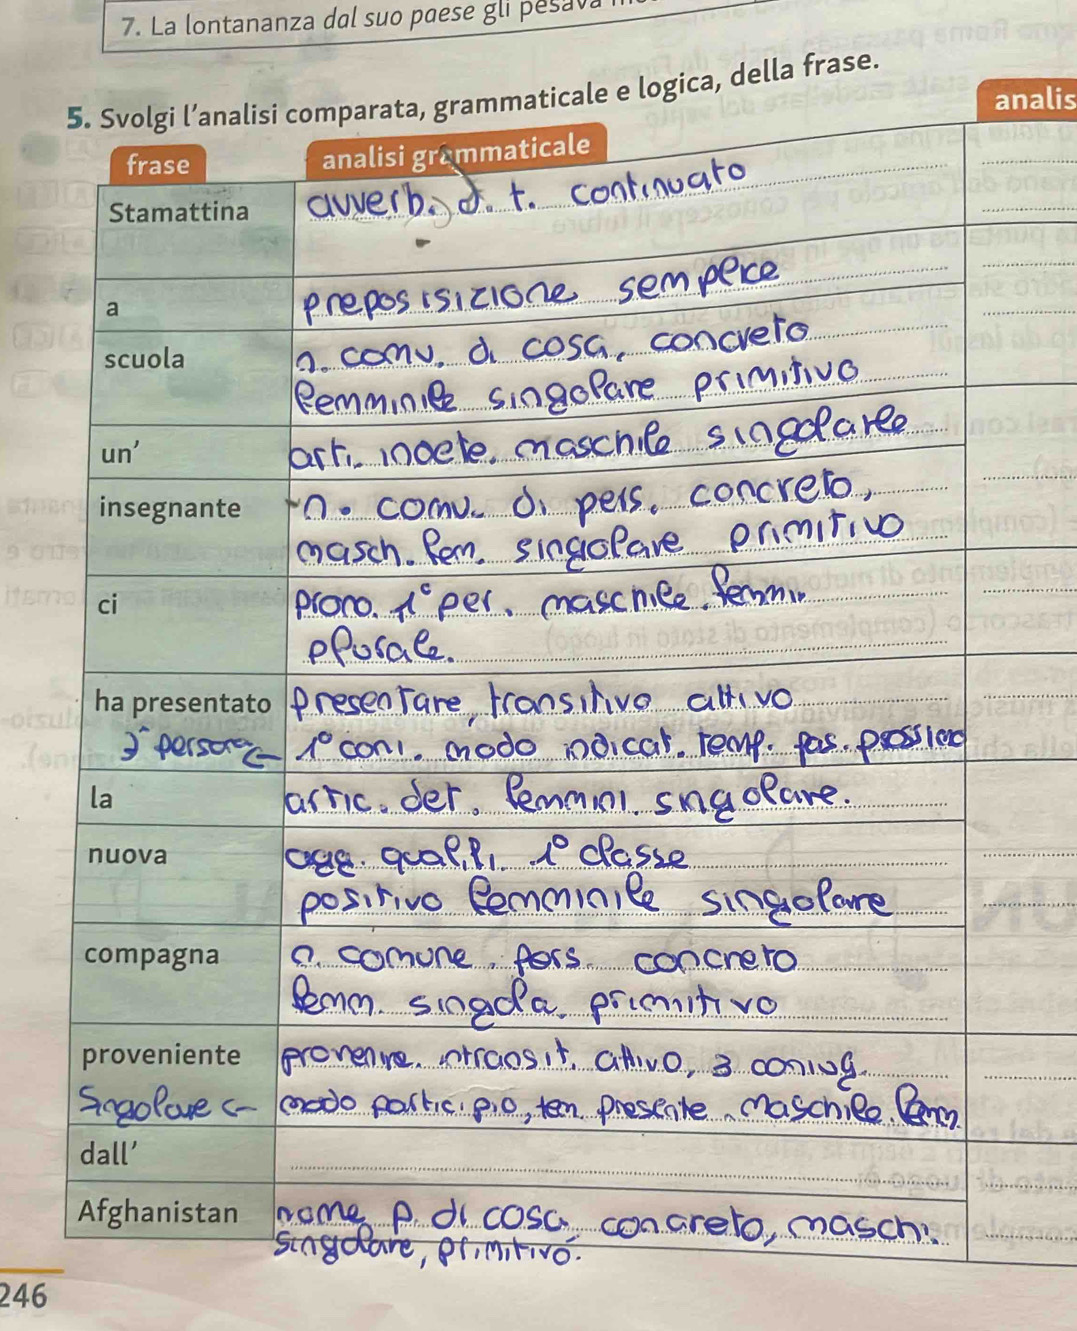 7. La lontananza dal suo paese gli pesava
5. Svolgi l'analisi comparata, grammaticale e logica, della frase.
frase analisi grammaticale analis
Stamattina avverb. d. t. continuato
a preposisizione sempece
scuola n. comu. di cosa, concreto
femminile singolare primitivo
un' arti. indete. maschile singolarle
insegnante n. comu. di pers. concreto,
masch. fem. singolare primitivo
ci prono. 1° per. maschile, femmin
plurale.
ha presentato presentare, transitivo attivo
3ª persona ← 1° coni. modo indicat. temp. pas. prossimo
la artic. det. femmini. sngolare.
nuova agg. qualifi. 1° classe
positivo femminile singolare
compagna n. comune, pers. concreto
femm. singola. primitivo
proveniente provenire. intransit. attivo, 3 coniug.
Singolare ← modo participio, tem presente, maschile. femm
dall'
Afghanistan nome p. di cosa concreto, masch.
singolare, primitivo.
246